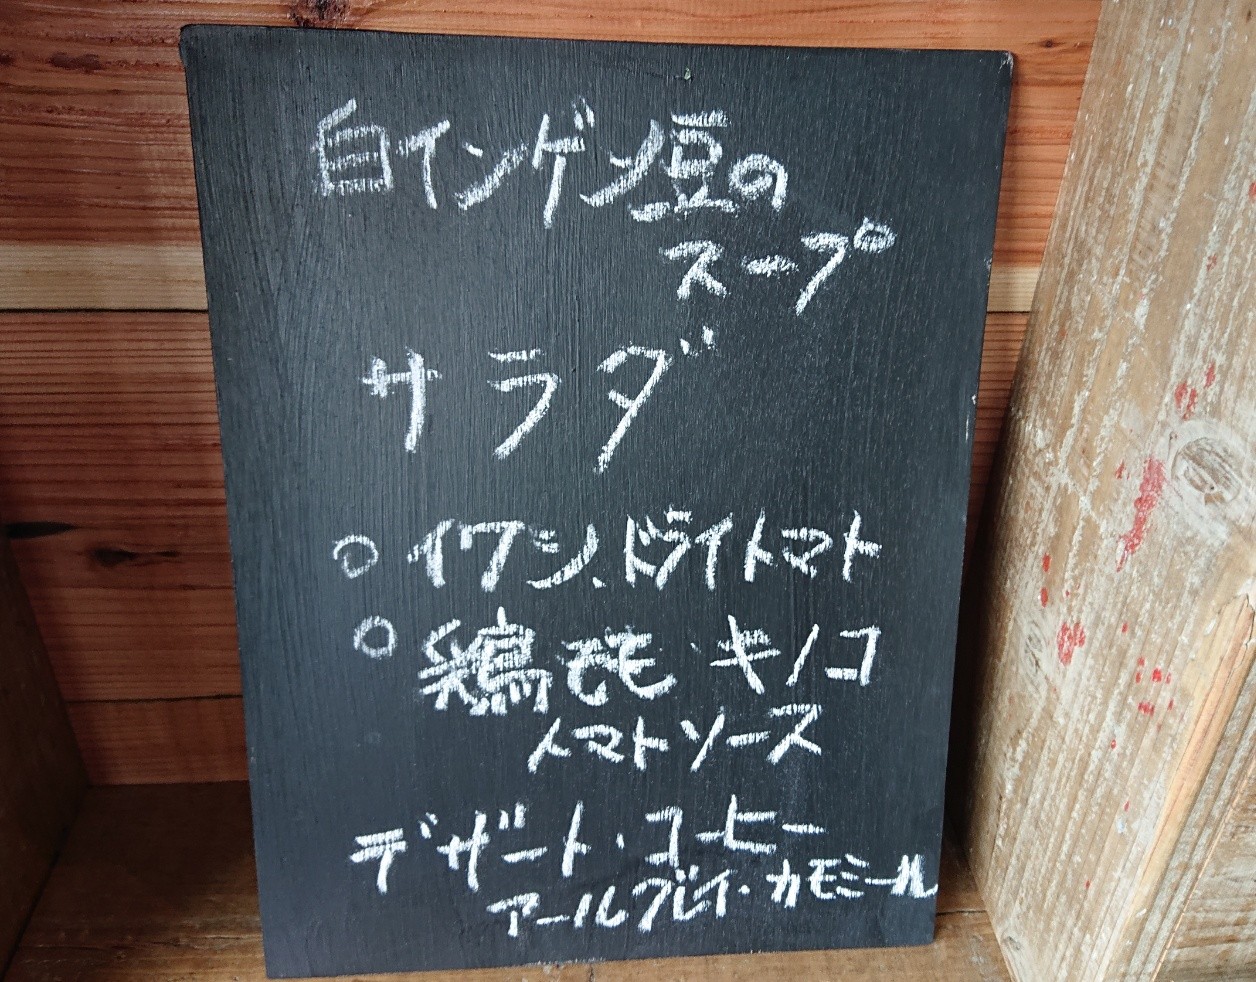 白インゲン豆の
スープ
サラダ
○イワシ、ドライトマト
○鶏モモ・キノコ
トマトソース
デザート・コーヒー
アールグレイ・カモミール